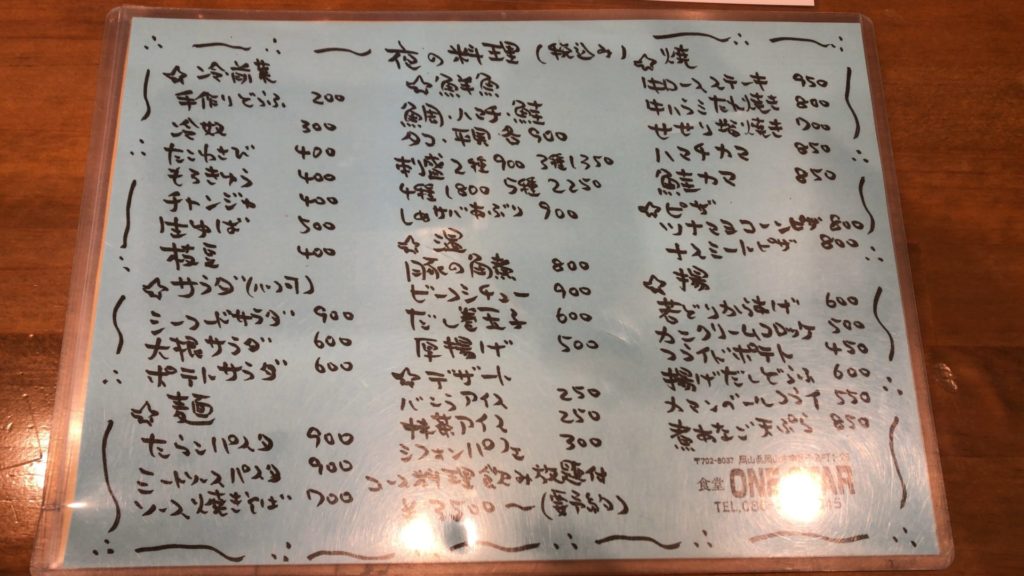 夜の料理 (税込み)
☆ 冷前菜
手作りどうふ 200
冷奴 300
たこわさび 400
もろきゅう 400
チャンジャ 400
500
枝豆 400
☆ サラダ (ハーフ可)
シーフードサラダ 900
大根サラダ 600
ポテトサラダ 600
☆ 麺
たらこパスタ 900
ミートソースパスタ 900
ソース焼きそば 700
☆ 鮮魚
鯛・ハマチ・鮭
タコ・ 各900
2種900 3種1350
4種1800 5種2250
しめさばあぶり 900
☆ 温
豚の角煮 800
ビーフシチュー 900
だし巻玉子 600
厚揚げ 500
☆ デザート
バニラアイス 250
抹茶アイス 250
シフォンパフェ 300
コース料理飲み放題付
¥3500〜(要予約)
☆ 焼
牛ロースステーキ 950
牛バラ 焼き 800
せせり 焼き 700
ハマチカマ 850
鮭カマ 850
☆ ピザ
ツナマヨコーンピザ 800
ナスミートピザ 800
☆ 揚
若どりから揚げ 600
カニクリームコロッケ 500
フライドポテト 450
揚げだしどうふ 600
メヤングールフライ 550
煮あなご天ぷら 850
〒702-8037
食堂 ONE STAR